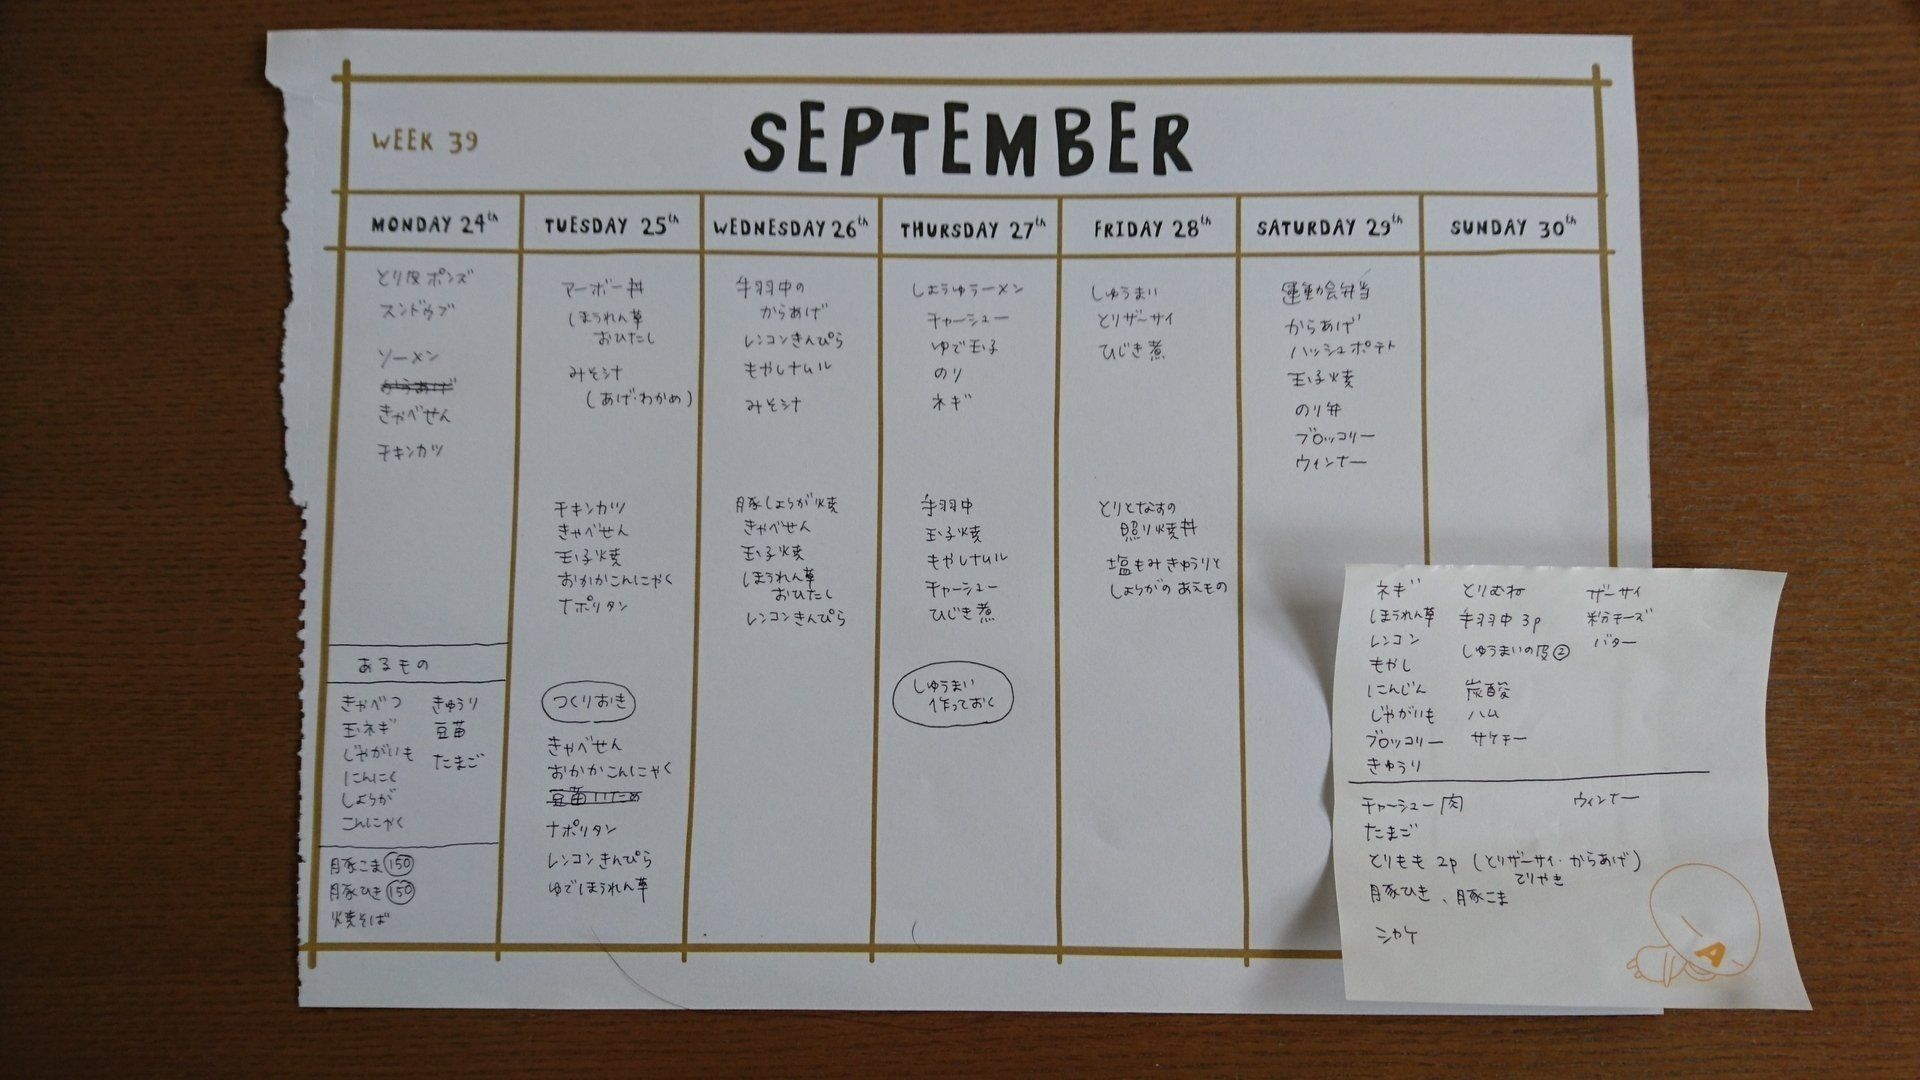 SEPTEMBER
WEEK 39
MONDAY 24th
とり皮ポンズ
スンドゥブ
ソーメン
からあげ
きゃべせん
チキンカツ
あるもの
きゃべつ
玉ネギ
じゃがいも
にんにく
しょうが
こんにゃく
きゅうり
豆苗
たまご
豚こま 150
豚ひき 150
焼そば
TUESDAY 25th
マーボー丼
ほうれん草
おひたし
みそ汁
(あげ・わかめ)
チキンカツ
きゃべせん
玉子焼
おかかこんにゃく
ナポリタン
つくりおき
きゃべせん
おかかこんにゃく
豆苗いため
ナポリタン
レンコンきんぴら
ゆでほうれん草
WEDNESDAY 26th
手羽中の
からあげ
レンコンきんぴら
もやしナムル
みそ汁
豚しょうが焼
きゃべせん
玉子焼
ほうれん草
おひたし
レンコンきんぴら
THURSDAY 27th
しょうゆラーメン
チャーシュー
ゆで玉子
のり
ネギ
手羽中
玉子焼
もやしナムル
チャーシュー
ひじき煮
しゅうまい
作っておく
FRIDAY 28th
しゅうまい
とりザーサイ
ひじき煮
とりとなすの
照り焼丼
塩もみきゅうりと
しょうがのあえもの
SATURDAY 29th
運動会弁当
からあげ
ハッシュポテト
玉子焼
のり弁
ブロッコリー
ウィンナー
SUNDAY 30th
ネギ
ほうれん草
レンコン
もやし
にんじん
じゃがいも
ブロッコリー
きゅうり
とりむね
手羽中 3p
しゅうまいの皮②
炭酸
ハム
サケチー
ザーサイ
粉チーズ
バター
チャーシュー肉
ウィンナー
たまご
とりもも 2p (とりザーサイ・からあげ)
てりやき
豚ひき、豚こま
シャケ
A